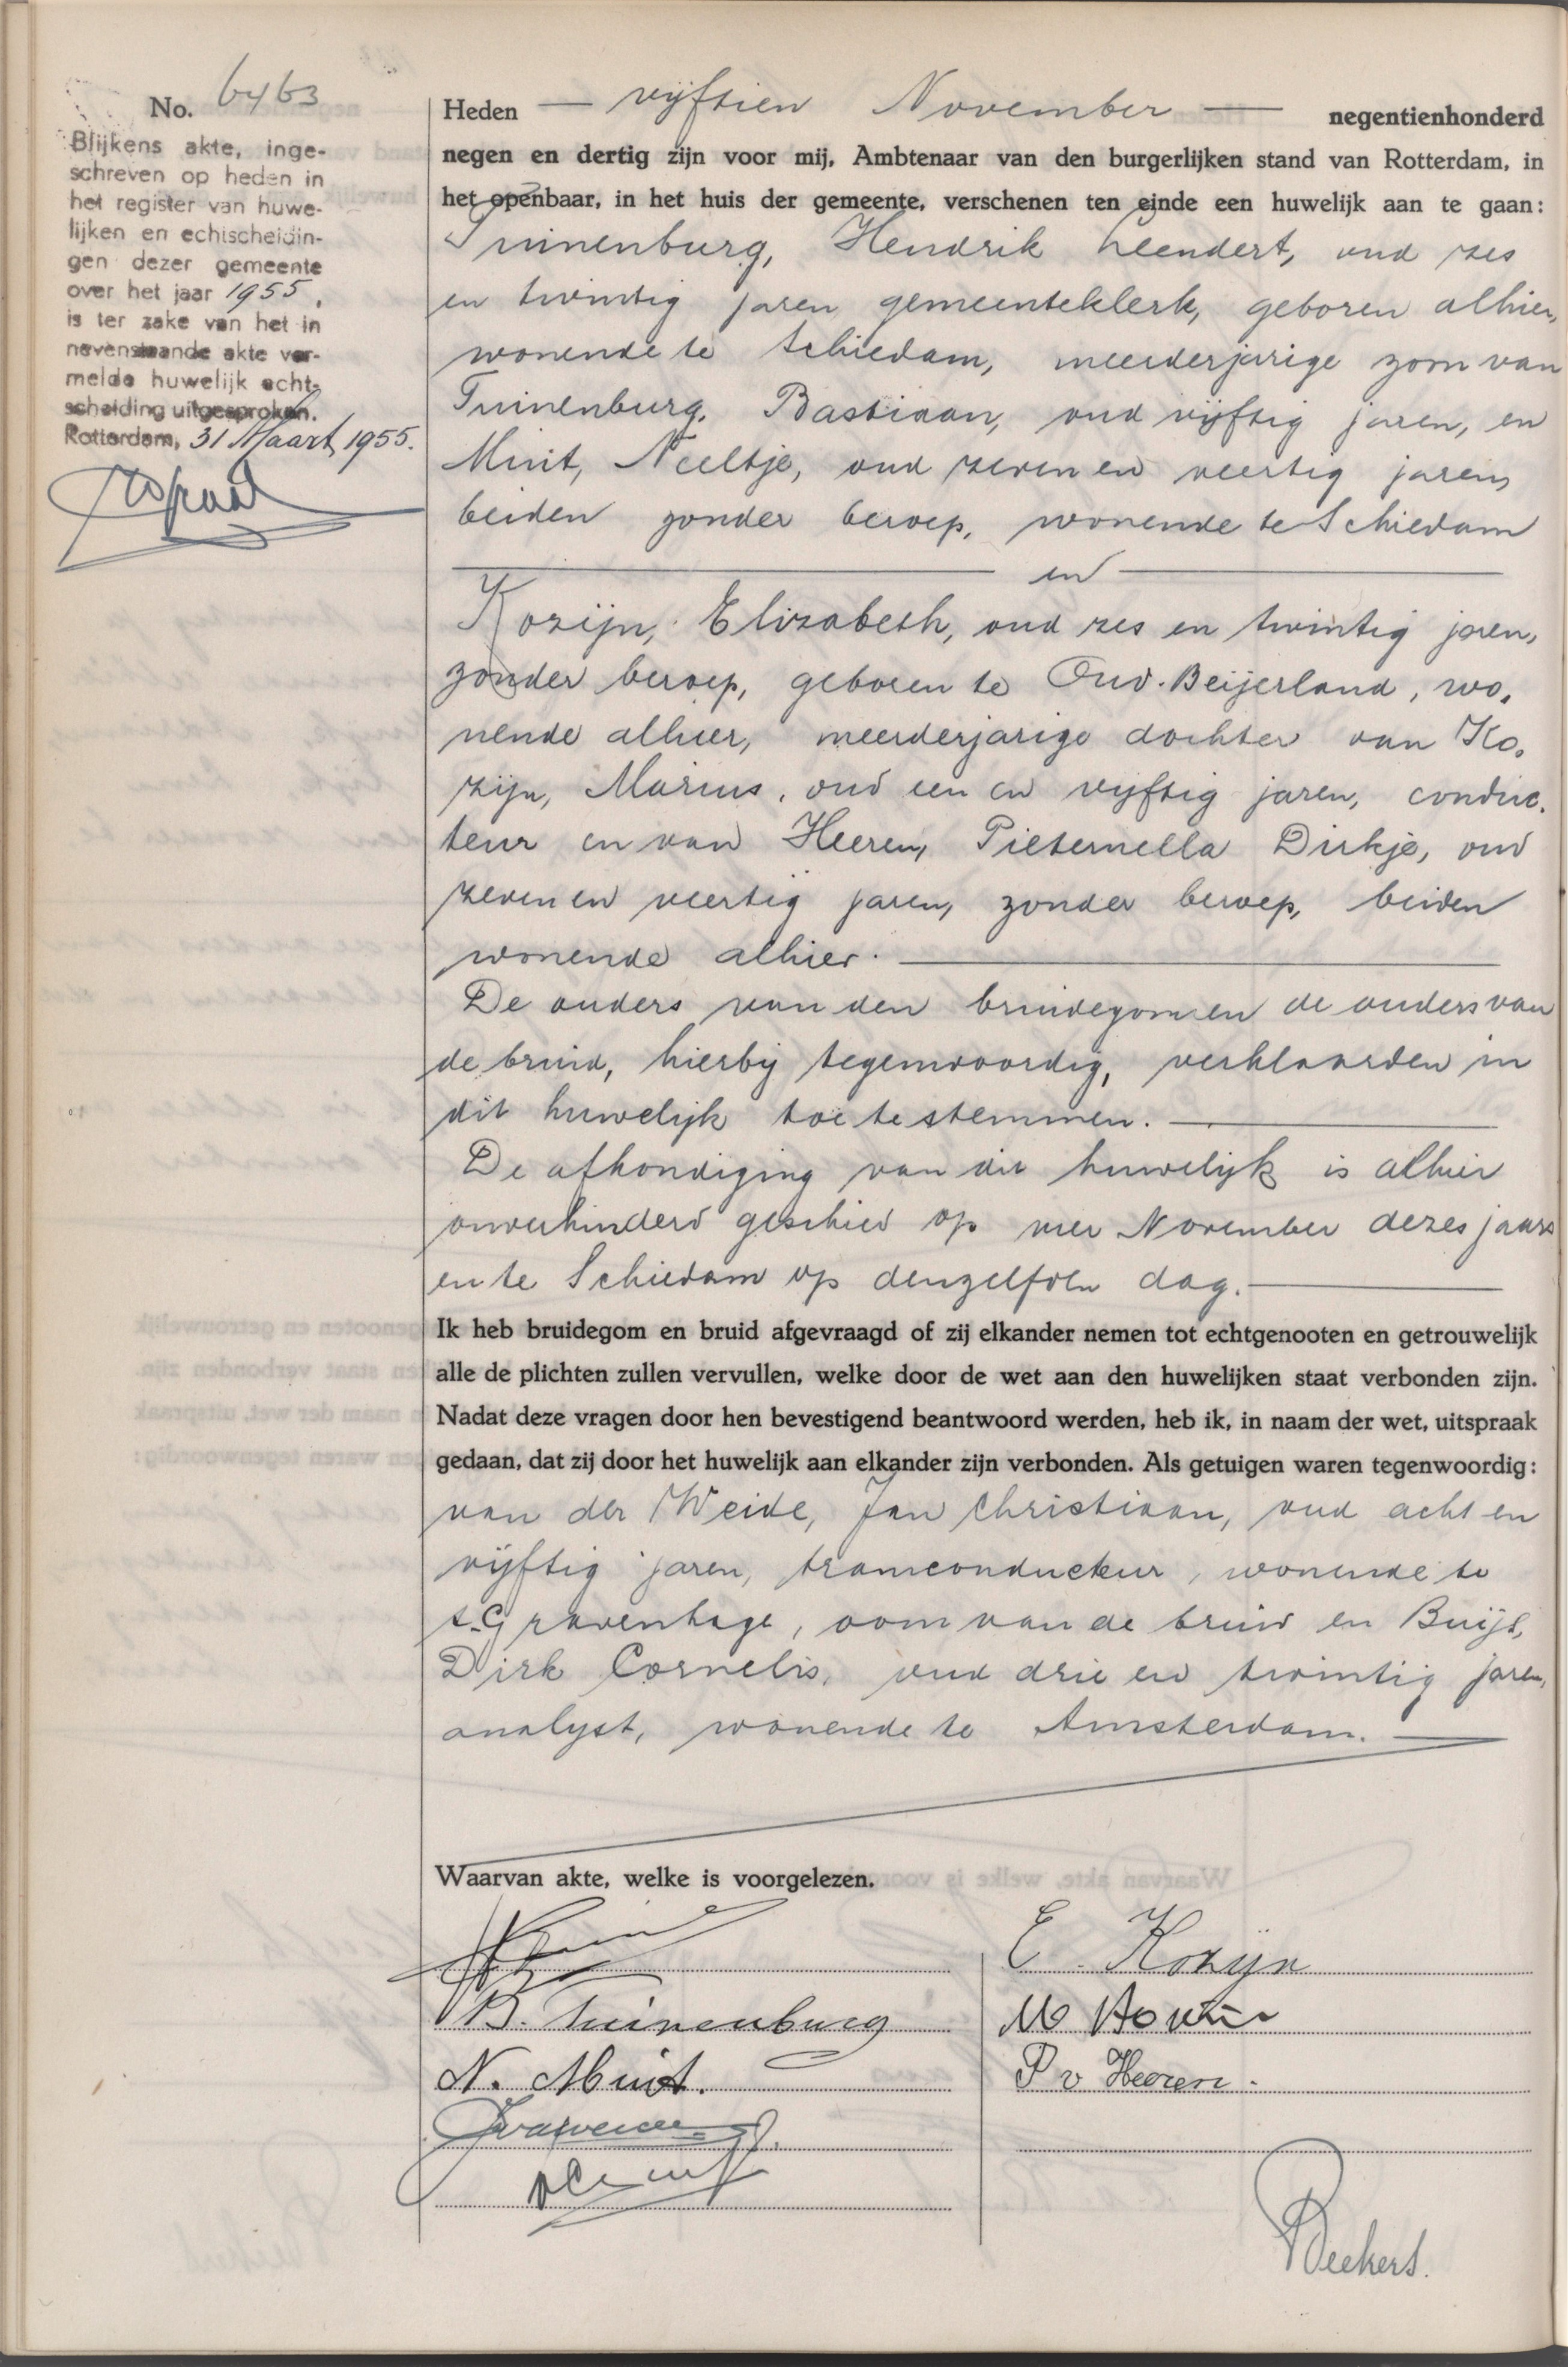 No. 6463
Blijkens akte, inge-
schreven op heden in
het register van huwe-
lijken en echtscheidin-
gen dezer gemeente
over het jaar 1955,
is ter zake van het in
nevenstaande akte ver-
melde huwelijk echt-
scheiding uitgesproken.
Rotterdam, 31 Maart 1955.
Heden — vijftien November — negentienhonderd
negen en dertig zijn voor mij, Ambtenaar van den burgerlijken stand van Rotterdam, in
het openbaar, in het huis der gemeente, verschenen ten einde een huwelijk aan te gaan:
Tuinenburg, Hendrik Leendert, oud zes
en twintig jaren gemeenteklerk, geboren alhier,
wonende te Schiedam, meerderjarige zoon van
Tuinenburg, Bastiaan, oud vijftig jaren, en
Muit, Neeltje, oud zeven en veertig jaren,
beiden zonder beroep, wonende te Schiedam
en
Kozijn, Elizabeth, oud zes en twintig jaren,
zonder beroep, geboren te Oud-Beijerland, wo-
nende alhier, meerderjarige dochter van Ko-
zijn, Marius, oud een en vijftig jaren, conduc-
teur en van Heeren, Pieternella Dirkje, oud
zeven en veertig jaren, zonder beroep, beiden
wonende alhier.
De ouders van den bruidegom en de ouders van
de bruid, hierbij tegenwoordig, verklaarden in
dit huwelijk toe te stemmen.
De afkondiging van dit huwelijk is alhier
onverhinderd geschied op vier November dezes jaars
en te Schiedam op denzelfden dag.
Ik heb bruidegom en bruid afgevraagd of zij elkander nemen tot echtgenooten en getrouwelijk
alle de plichten zullen vervullen, welke door de wet aan den huwelijken staat verbonden zijn.
Nadat deze vragen door hen bevestigend beantwoord werden, heb ik, in naam der wet, uitspraak
gedaan, dat zij door het huwelijk aan elkander zijn verbonden. Als getuigen waren tegenwoordig:
van der Weide, Jan Christiaan, oud acht en
vijftig jaren, tramconducteur, wonende te
s-Gravenhage, oom van de bruid en Buijs,
Dirk Cornelis, oud drie en twintig jaren,
analyst, wonende te Amsterdam.
Waarvan akte, welke is voorgelezen.
E. Kozijn
B. Tuinenburg
M Kozijn
N. Muit.
P v Heeren.